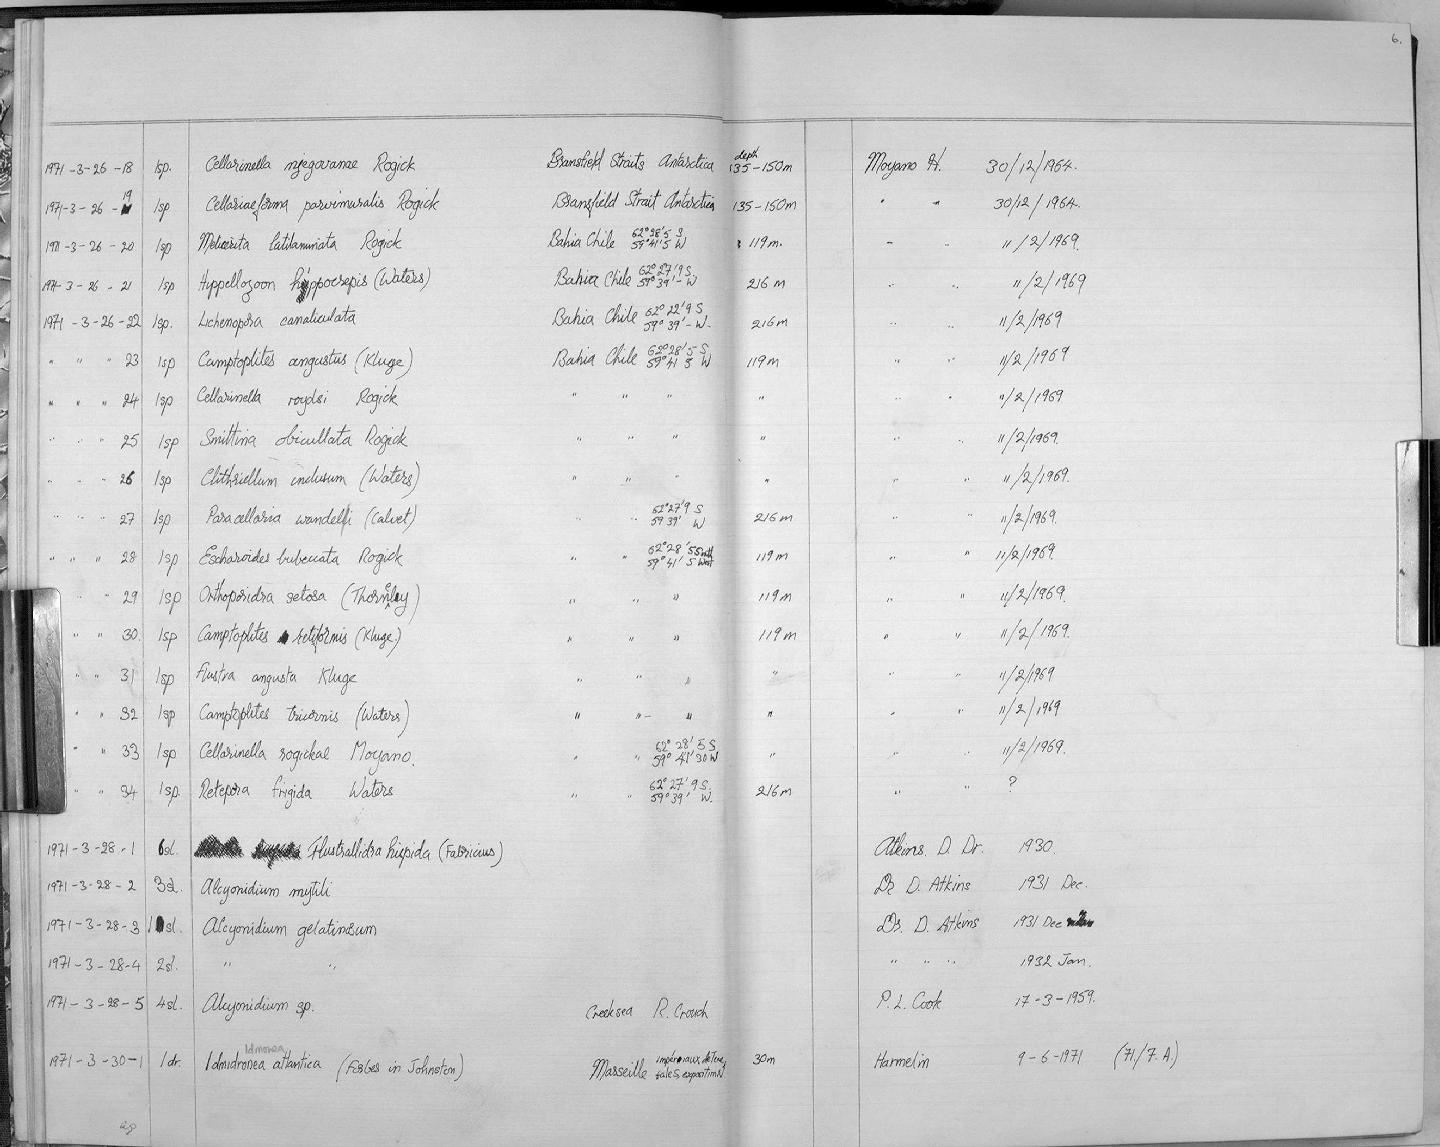 6.
depth
1971-3-26-18 1sp. Cellarinella njegovanae Rogick Bransfield Straits Antarctica 135-150m Moyano H. 30/12/1964.
1971-3-26-19 1sp Cellariaeforma parvimuralis Rogick Bransfield Strait Antarctica 135-150m " " 30/12/1964.
1971-3-26-20 1sp latilaminata Rogick Bahia Chile 62°28'5 S 59°41'5 W 119m. " " "/2/1969.
1971-3-26-21 1sp Hippellozoon hippocrepis (Waters) Bahia Chile 62°27'9 S. 59°39'- W 216m " " "/2/1969
1971-3-26-22 1sp. Lichenopora canaliculata Bahia Chile 62°22'9 S 59°39'- W- 216m " " "/2/1969
" " " 23 1sp Camptoplites angustus (Kluge) Bahia Chile 62°28'5 S 59°41'5 W 119m " " "/2/1969
" " " 24 1sp Cellarinella roydsi Rogick " " " " " " "/2/1969
" " " 25 1sp Smittina obicullata Rogick " " " " " " "/2/1969.
" " " 26 1sp Clithriellum inclusum (Waters) " " " " " " "/2/1969.
" " " 27 1sp Paracellaria wandelli (Calvet) " " 62°27'9 S 59 39' W 216m " " "/2/1969.
" " " 28 1sp Escharoides bubeccata Rogick " " 62°28'5 South 59°41'5 West 119m " " 11/2/1969.
" " 29 1sp Orthoporidra setosa (Thornley) " " " 119m " " "/2/1969.
" " 30. 1sp Camptoplites retiformis (Kluge.) " " " 119m " " "/2/1969.
" " 31 1sp flustra angusta Kluge " " " " " " "/2/1969
" " 32 1sp Camptoplites tricornis (Waters) " "- " " " " "/2/1969
" " 33 1sp Cellarinella rogickae Moyano. " " 62°28'5 S 59°41'30W " " " "/2/1969.
" " 34 1sp. Retepora frigida Waters " " 62°27'9 S. 59°39' W. 216m " " ?
1971-3-28-1 6sl. Flustrallidra hispida (Fabricius) Atkins. D. Dr. 1930.
1971-3-28-2 3sl. Alcyonidium mytili Dr D. Atkins 1931 Dec.
1971-3-28-3 1 sl. Alcyonidium gelatinosum Dr. D. Atkins 1931 Dec
1971-3-28-4 2sl. " " " " " 1932 Jan.
1971-3-28-5 4sl. Alcyonidium sp. Creeksea R. Crouch P.L. Cook 17-3-1959.
Idmonea
1971-3-30-1 1dr. Idmidronea atlantica (Forbes in Johnston) Marseille 30m Harmelin 9-6-1971 (71/7.A.)